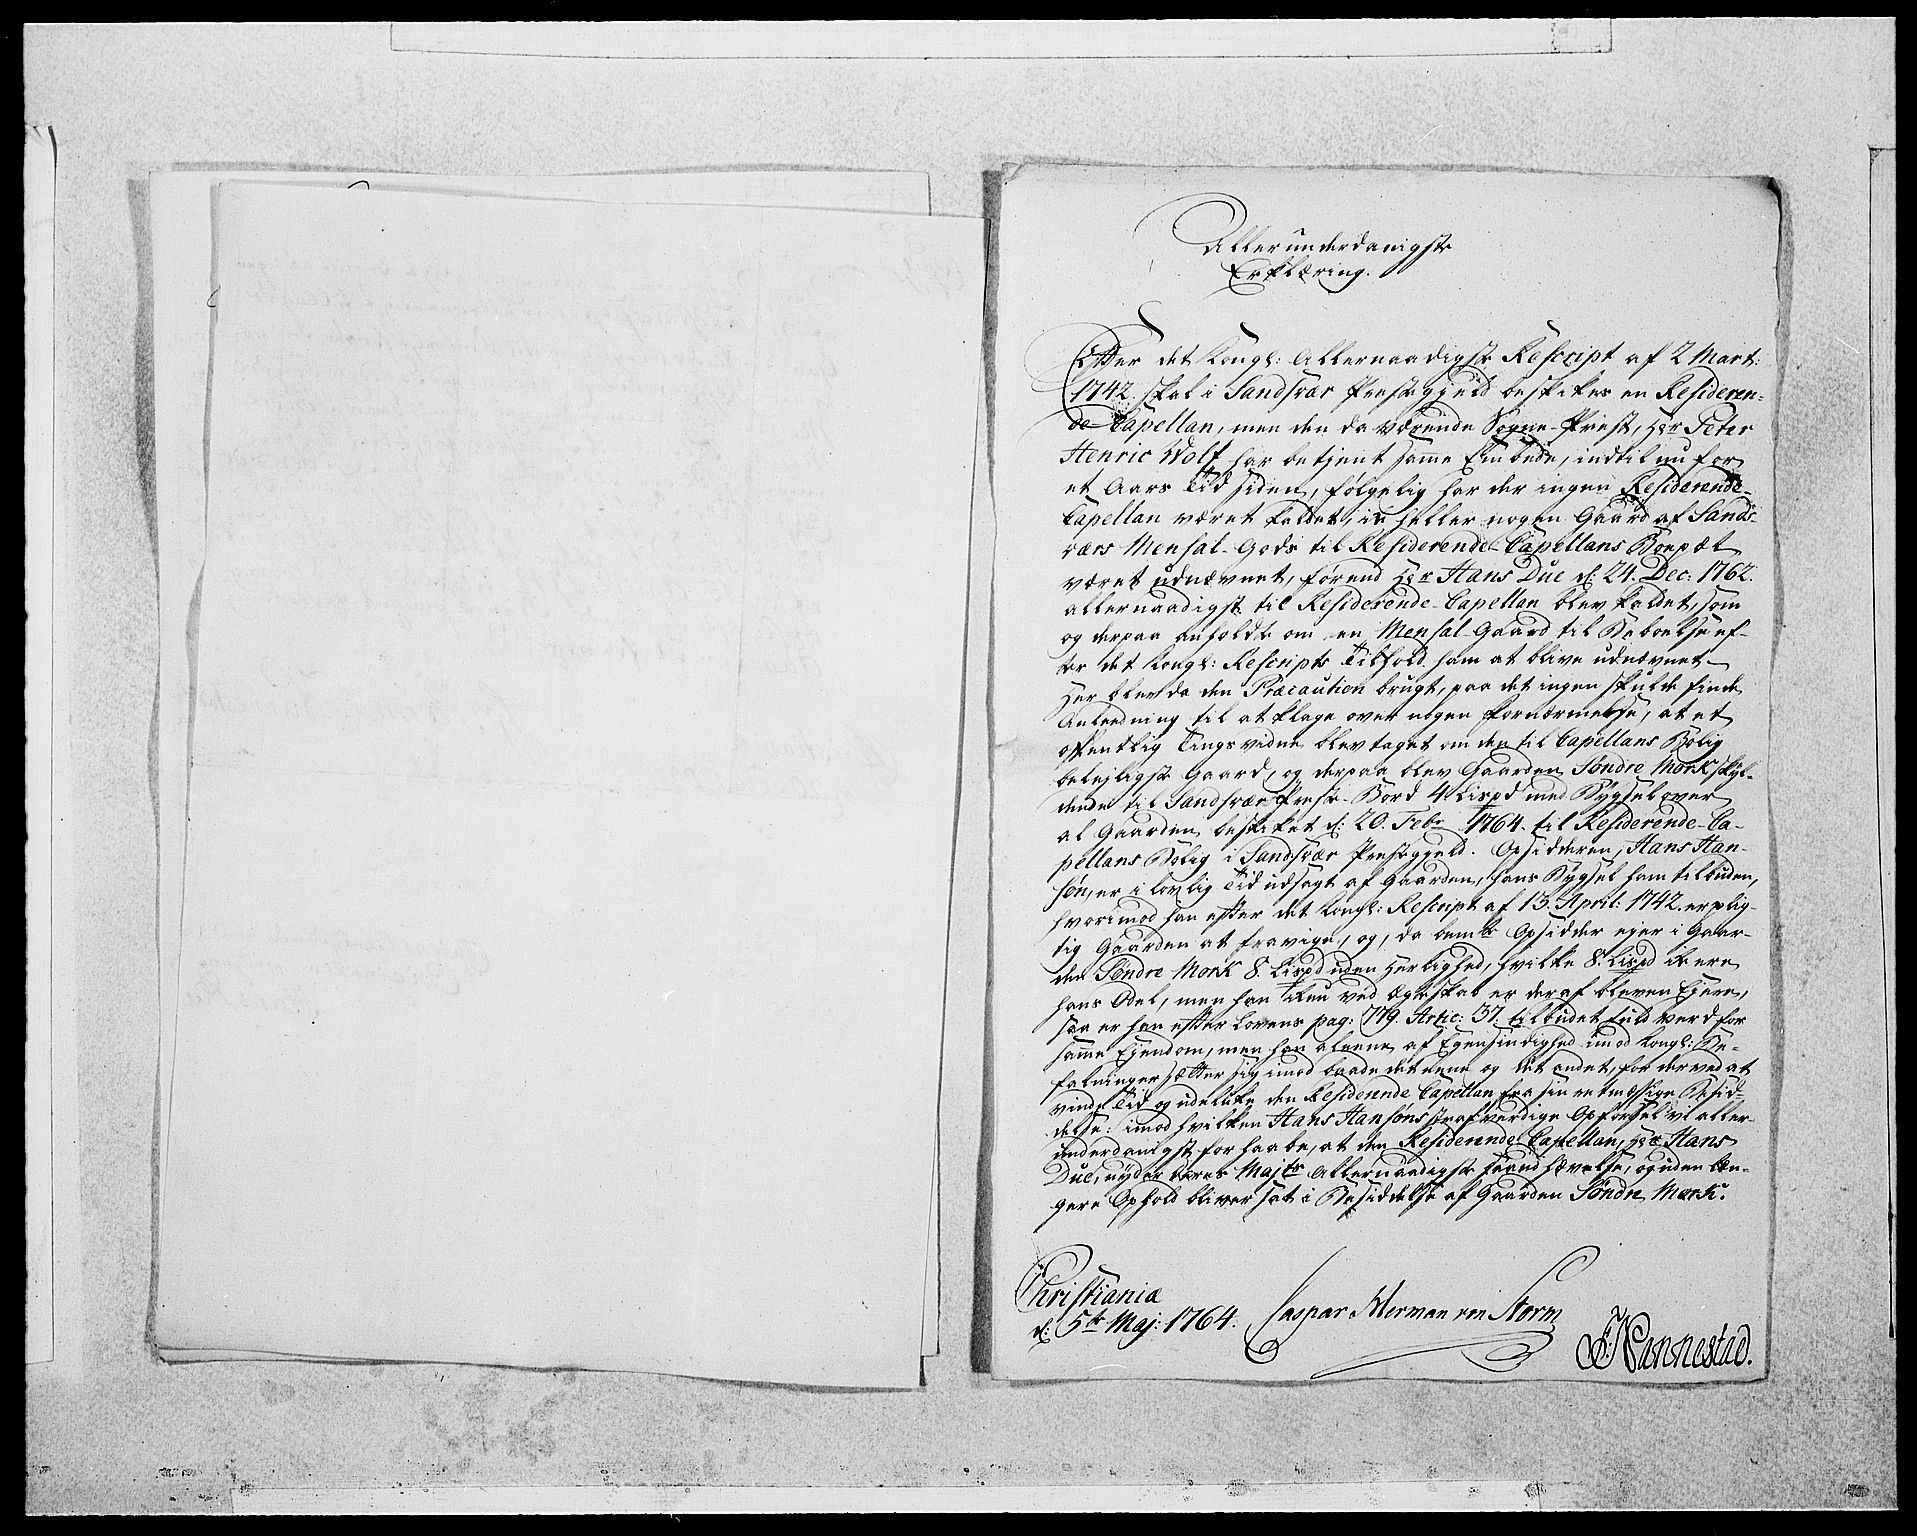 Allerunderdanigste
Erklæring.
Efter det Kongl: Allernaadigste Rescript af 2 Mart:
1742. skal i Sandsvær Præstegjeld beskikes en Resideren-
de-Capellan, men den da værende Sogne-Præst, Hr Peter
Henric Wolf, har betjent samme Embede, indtil nu for
et Aars Tid siden, følgelig har der ingen Residerende-
Capellan været kaldet, ik heller nogen Gaard af Sands-
værs Mensal-Gods til Residerende-Capellans Boepæl
været udnævnet, førend Hr Hans Due d: 24. Dec: 1762.
allernaadigst til Residerende-Capellan blev kaldet, som
og derpaa anholdte om en Mensal-Gaard til Beboelse ef-
ter det Kongl: Rescripts Tilhold ham at blive udnævnet.
Her blev da den Præcaution brugt, paa det ingen skulde finde
Anledning til at klage over nogen Fornærmelse, at et
offentlig Tingsvidne blev taget om den til Capellans Bolig
belejligste Gaard, og derpaa blev Gaarden Søndre Mork skyl-
dende til Sandsvær Præste-Bord 4 Lispd med Bygsel over
al Gaarden beskiket d: 20. Febr 1764. til Residerende-Ca-
pellans Bolig i Sandsvær Præstegjeld. Opsidderen, Hans Han-
søn, er i lovlig Tid udsagt af Gaarden, hans Bygsel ham tilbuden,
hvorimod han efter det Kongl: Rescript af 13. April: 1742. er plig-
tig Gaarden at fravige, og, da bemte Opsidder ejer i Gaar-
den Søndre Mork 8. Lispd uden Herlighed, hvilke 8. Lispd ik ere
hans Odel, men han ikun ved Ægteskab er deraf bleven Ejere,
saa er han efter Lovens pag: 779. Artic: 37. tilbudet fuld verd for
samme Ejendom, men han aleene af Egensindighed imod Kongl: Be-
falninger sætter sig imod baade det eene og det andet, for derved at
vinde Tid og udelukke den Residerende Capellan fra sin retmæssige Besid-
delse: imod hvilken Hans Hansøns strafverdige Opførsel vi aller-
underdanigst forhaabe, at den Residerende Capellan, Hr Hans
Due, nyder Deres Majts Allernaadigste Haandhævelse, og uden læn-
gere Ophold bliver sat i Besiddelse af Gaarden Søndre Mork.
Christiania
d: 5te Maj: 1764. Caspar Herman von Storm
F: Nannestad.